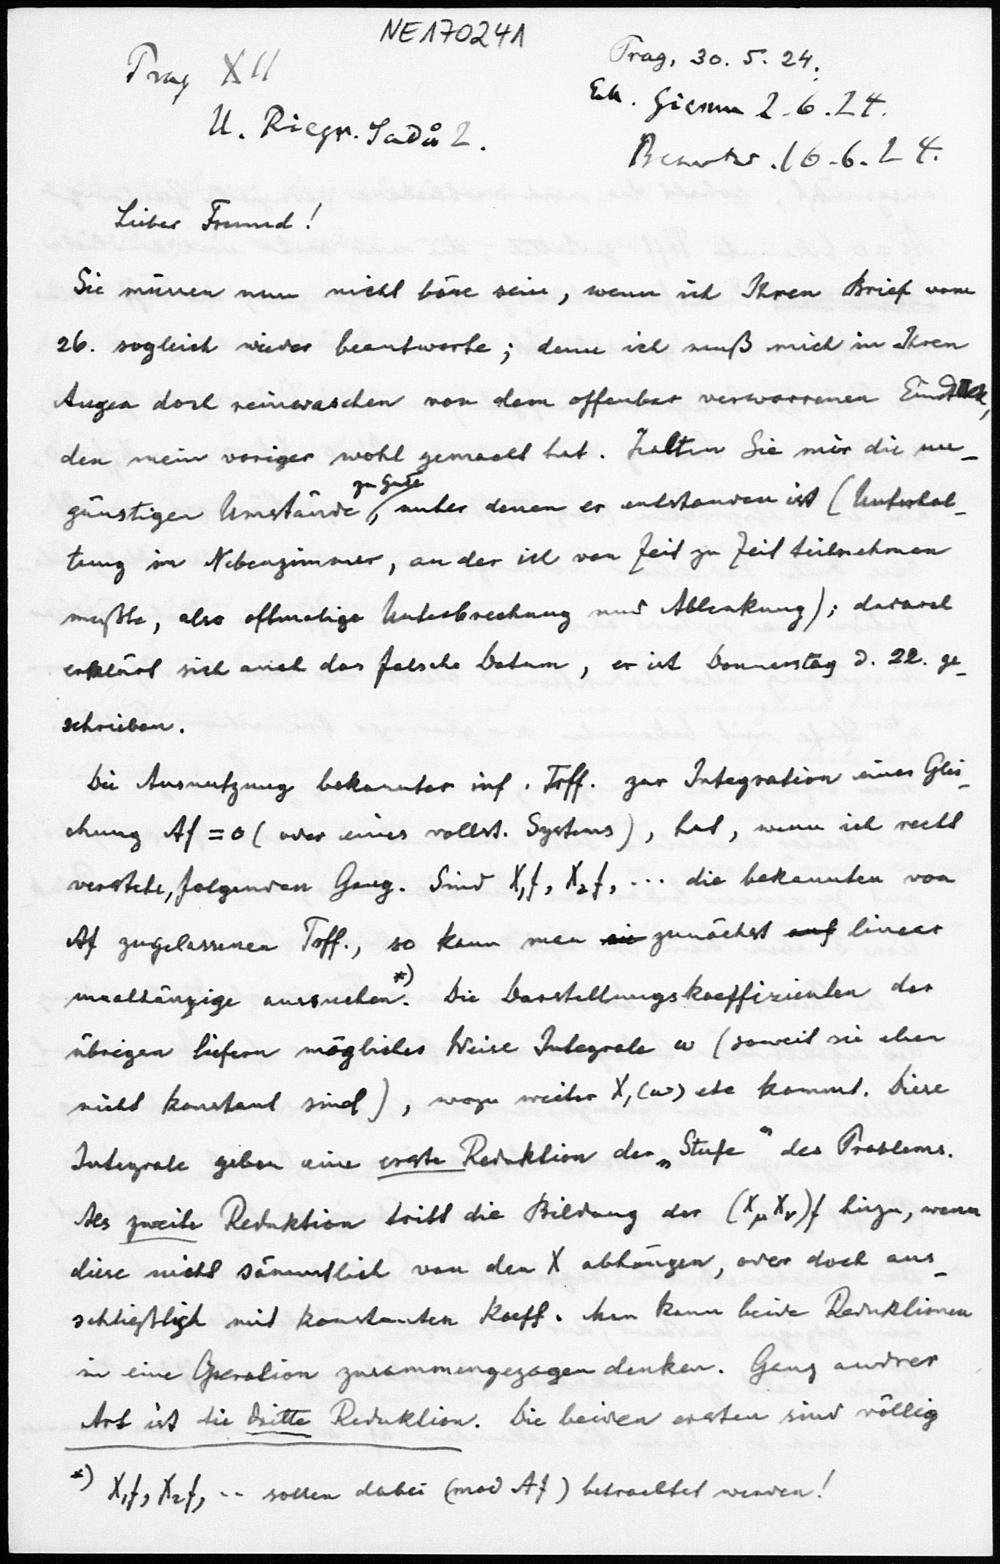 NE170241
Prag XII
U. Riegr. Sadů 2.
Prag, 30. 5. 24.
Erh. Giessen 2.6.24.
Beantw. 16.6.24.
Lieber Freund!
Sie müssen nun nicht böse sein, wenn ich Ihren Brief vom
26. sogleich wieder beantworte; denn ich muß mich in Ihren
Augen doch reinwaschen von dem offenbar verworrenen Eindruck,
den mein voriger wohl gemacht hat. Halten Sie mir die un-
günstigen Umstände zu Gute, unter denen er entstanden ist (Unterhal-
tung im Nebenzimmer, an der ich von Zeit zu Zeit teilnehmen
mußte, also oftmalige Unterbrechung und Ablenkung); daraus
erklärt sich auch das falsche Datum, er ist Donnerstag d. 22. ge-
schrieben.
Die Ausnutzung bekannter inf. Trff. zur Integration einer Glei-
chung Af = 0 (oder eines vollst. Systems), hat, wenn ich recht
verstehe, folgenden Gang. Sind X₁f, X₂f, ... die bekannten von
Af zugelassenen Trff., so kann man sie zunächst auf linear
unabhängige aussuchen.*) Die Darstellungskoeffizienten der
übrigen liefern möglicher Weise Integrale ω (soweit sie eben
nicht konstant sind), wozu weiter X₁(ω) etc kommt. Diese
Integrale geben eine erste Reduktion der „Stufe" des Problems.
Als zweite Reduktion tritt die Bildung der (X_μ X_ν)f hinzu, wenn
diese nicht sämmtlich von den X abhängen, oder doch aus-
schließlich mit konstanten Koeff. Man kann beide Reduktionen
in eine Operation zusammengezogen denken. Ganz andrer
Art ist die dritte Reduktion. Die beiden ersten sind völlig
*) X₁f, X₂f, ·· sollen dabei (mod Af) betrachtet werden!